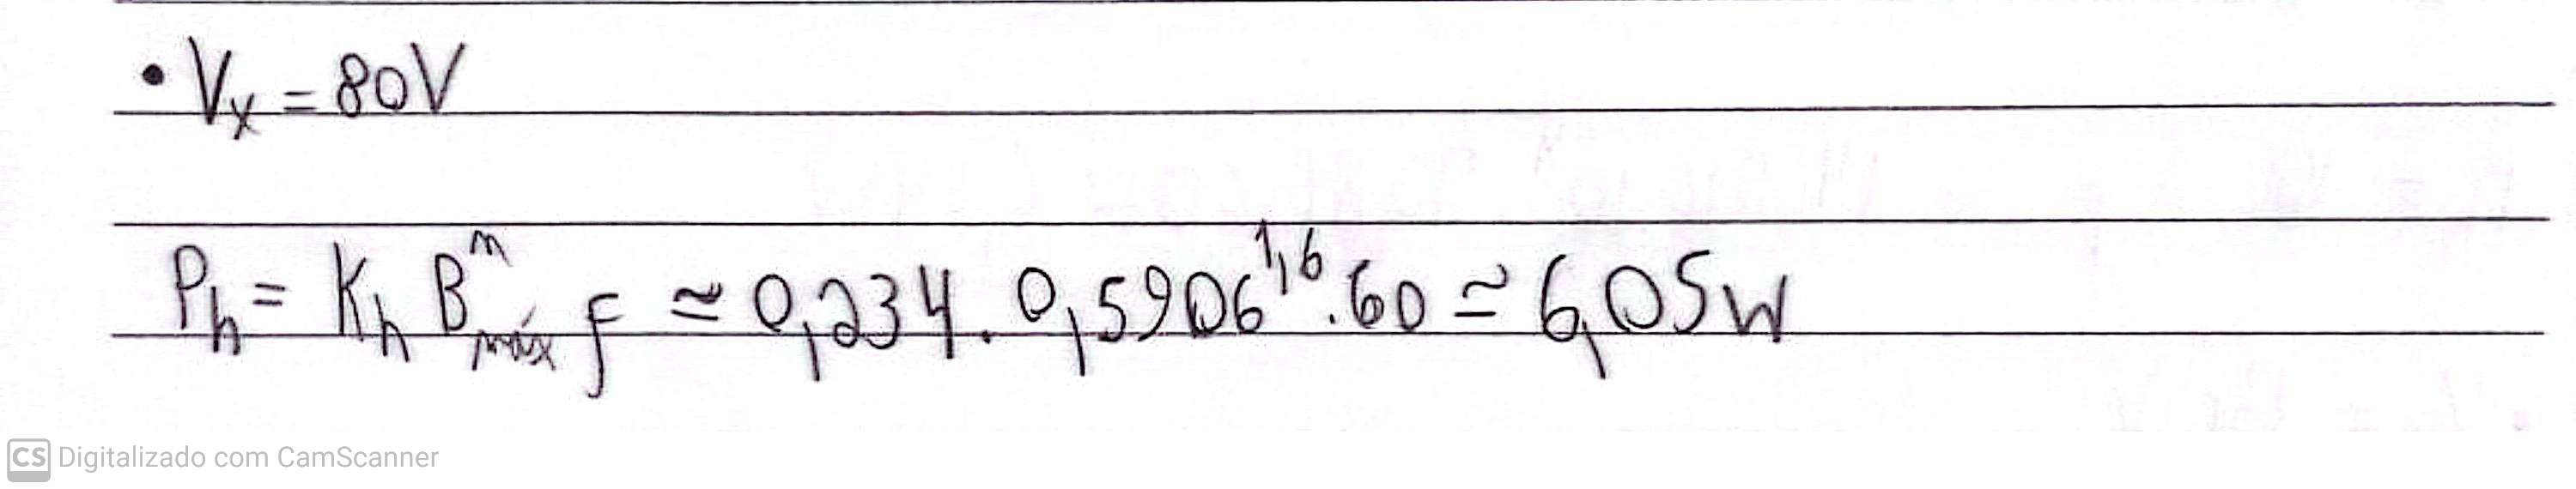 • Vx = 80V
Ph = Kh B^n máx f ≃ 0,234 . 0,5906^1,6 . 60 ≃ 6,05W
CS Digitalizado com CamScanner